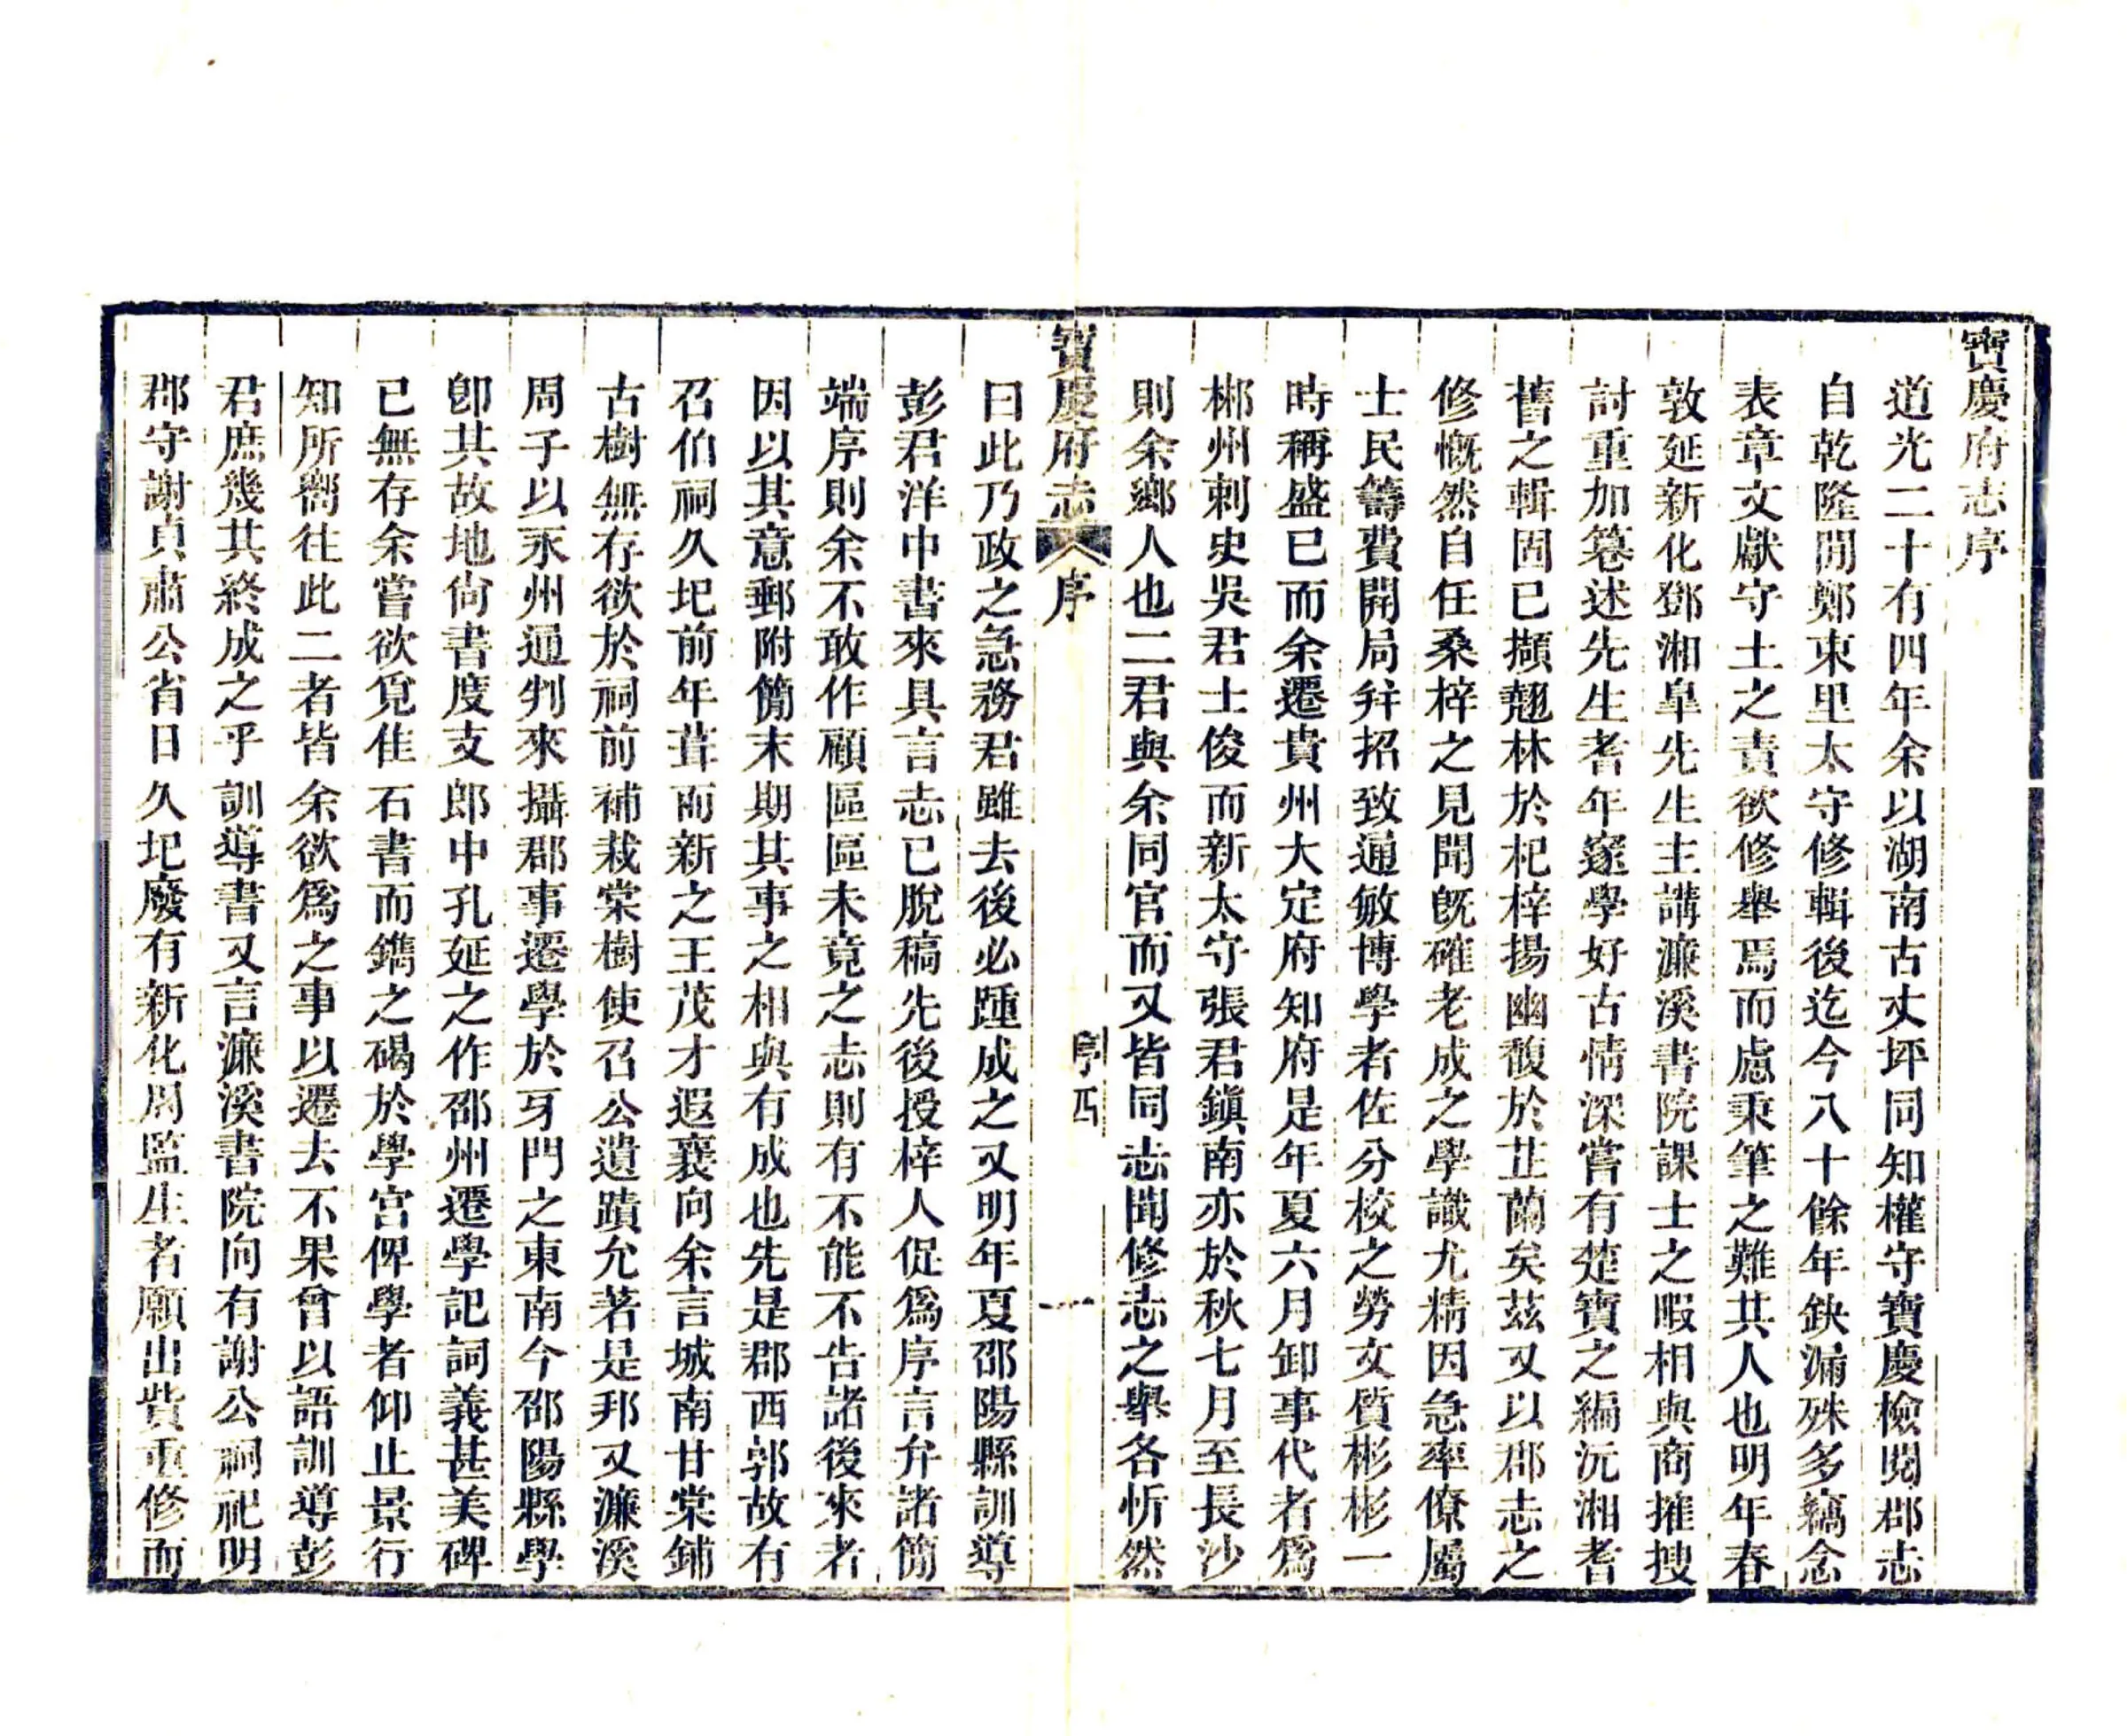 寶慶府志序
道光二十有四年余以湖南古丈坪同知權守寶慶檢閱郡志
自乾隆閒鄭東里太守修輯後迄今八十餘年缺漏殊多竊念
表章文獻守土之責欲修舉焉而慮秉筆之難其人也明年春
敦延新化鄧湘皐先生主講濂溪書院課士之暇相與商搉搜
討重加篹述先生耆年邃學好古情深嘗有楚寶之編沅湘耆
舊之輯固已擷翹林於杞梓揚幽馥於芷蘭矣茲又以郡志之
修慨然自任桑梓之見聞旣確老成之學識尤精因急率僚屬
士民籌費開局幷招致通敏博學者佐分校之勞文質彬彬一
時稱盛已而余遷貴州大定府知府是年夏六月卸事代者爲
郴州刺史吳君士俊而新太守張君鎭南亦於秋七月至長沙
則余鄉人也二君與余同官而又皆同志聞修志之舉各忻然
寶慶府志 序 序四 一
曰此乃政之急務君雖去後必踵成之又明年夏邵陽縣訓導
彭君洋中書來具言志已脫稿先後授梓人促爲序言弁諸簡
端序則余不敢作顧區區未竟之志則有不能不告諸後來者
因以其意郵附簡末期其事之相與有成也先是郡西郭故有
召伯祠久圮前年葺而新之王茂才遐襄向余言城南甘棠鋪
古樹無存欲於祠前補栽棠樹使召公遺蹟允著是邦又濂溪
周子以永州通判來攝郡事遷學於牙門之東南今邵陽縣學
卽其故地尙書度支郎中孔延之作邵州遷學記詞義甚美碑
已無存余嘗欲覓佳石書而鐫之碣於學宮俾學者仰止景行
知所嚮往此二者皆余欲爲之事以遷去不果曾以語訓導彭
君庶幾其終成之乎訓導書又言濂溪書院向有謝公祠祀明
郡守謝貞肅公省日久圮廢有新化周監生者願出貲重修而